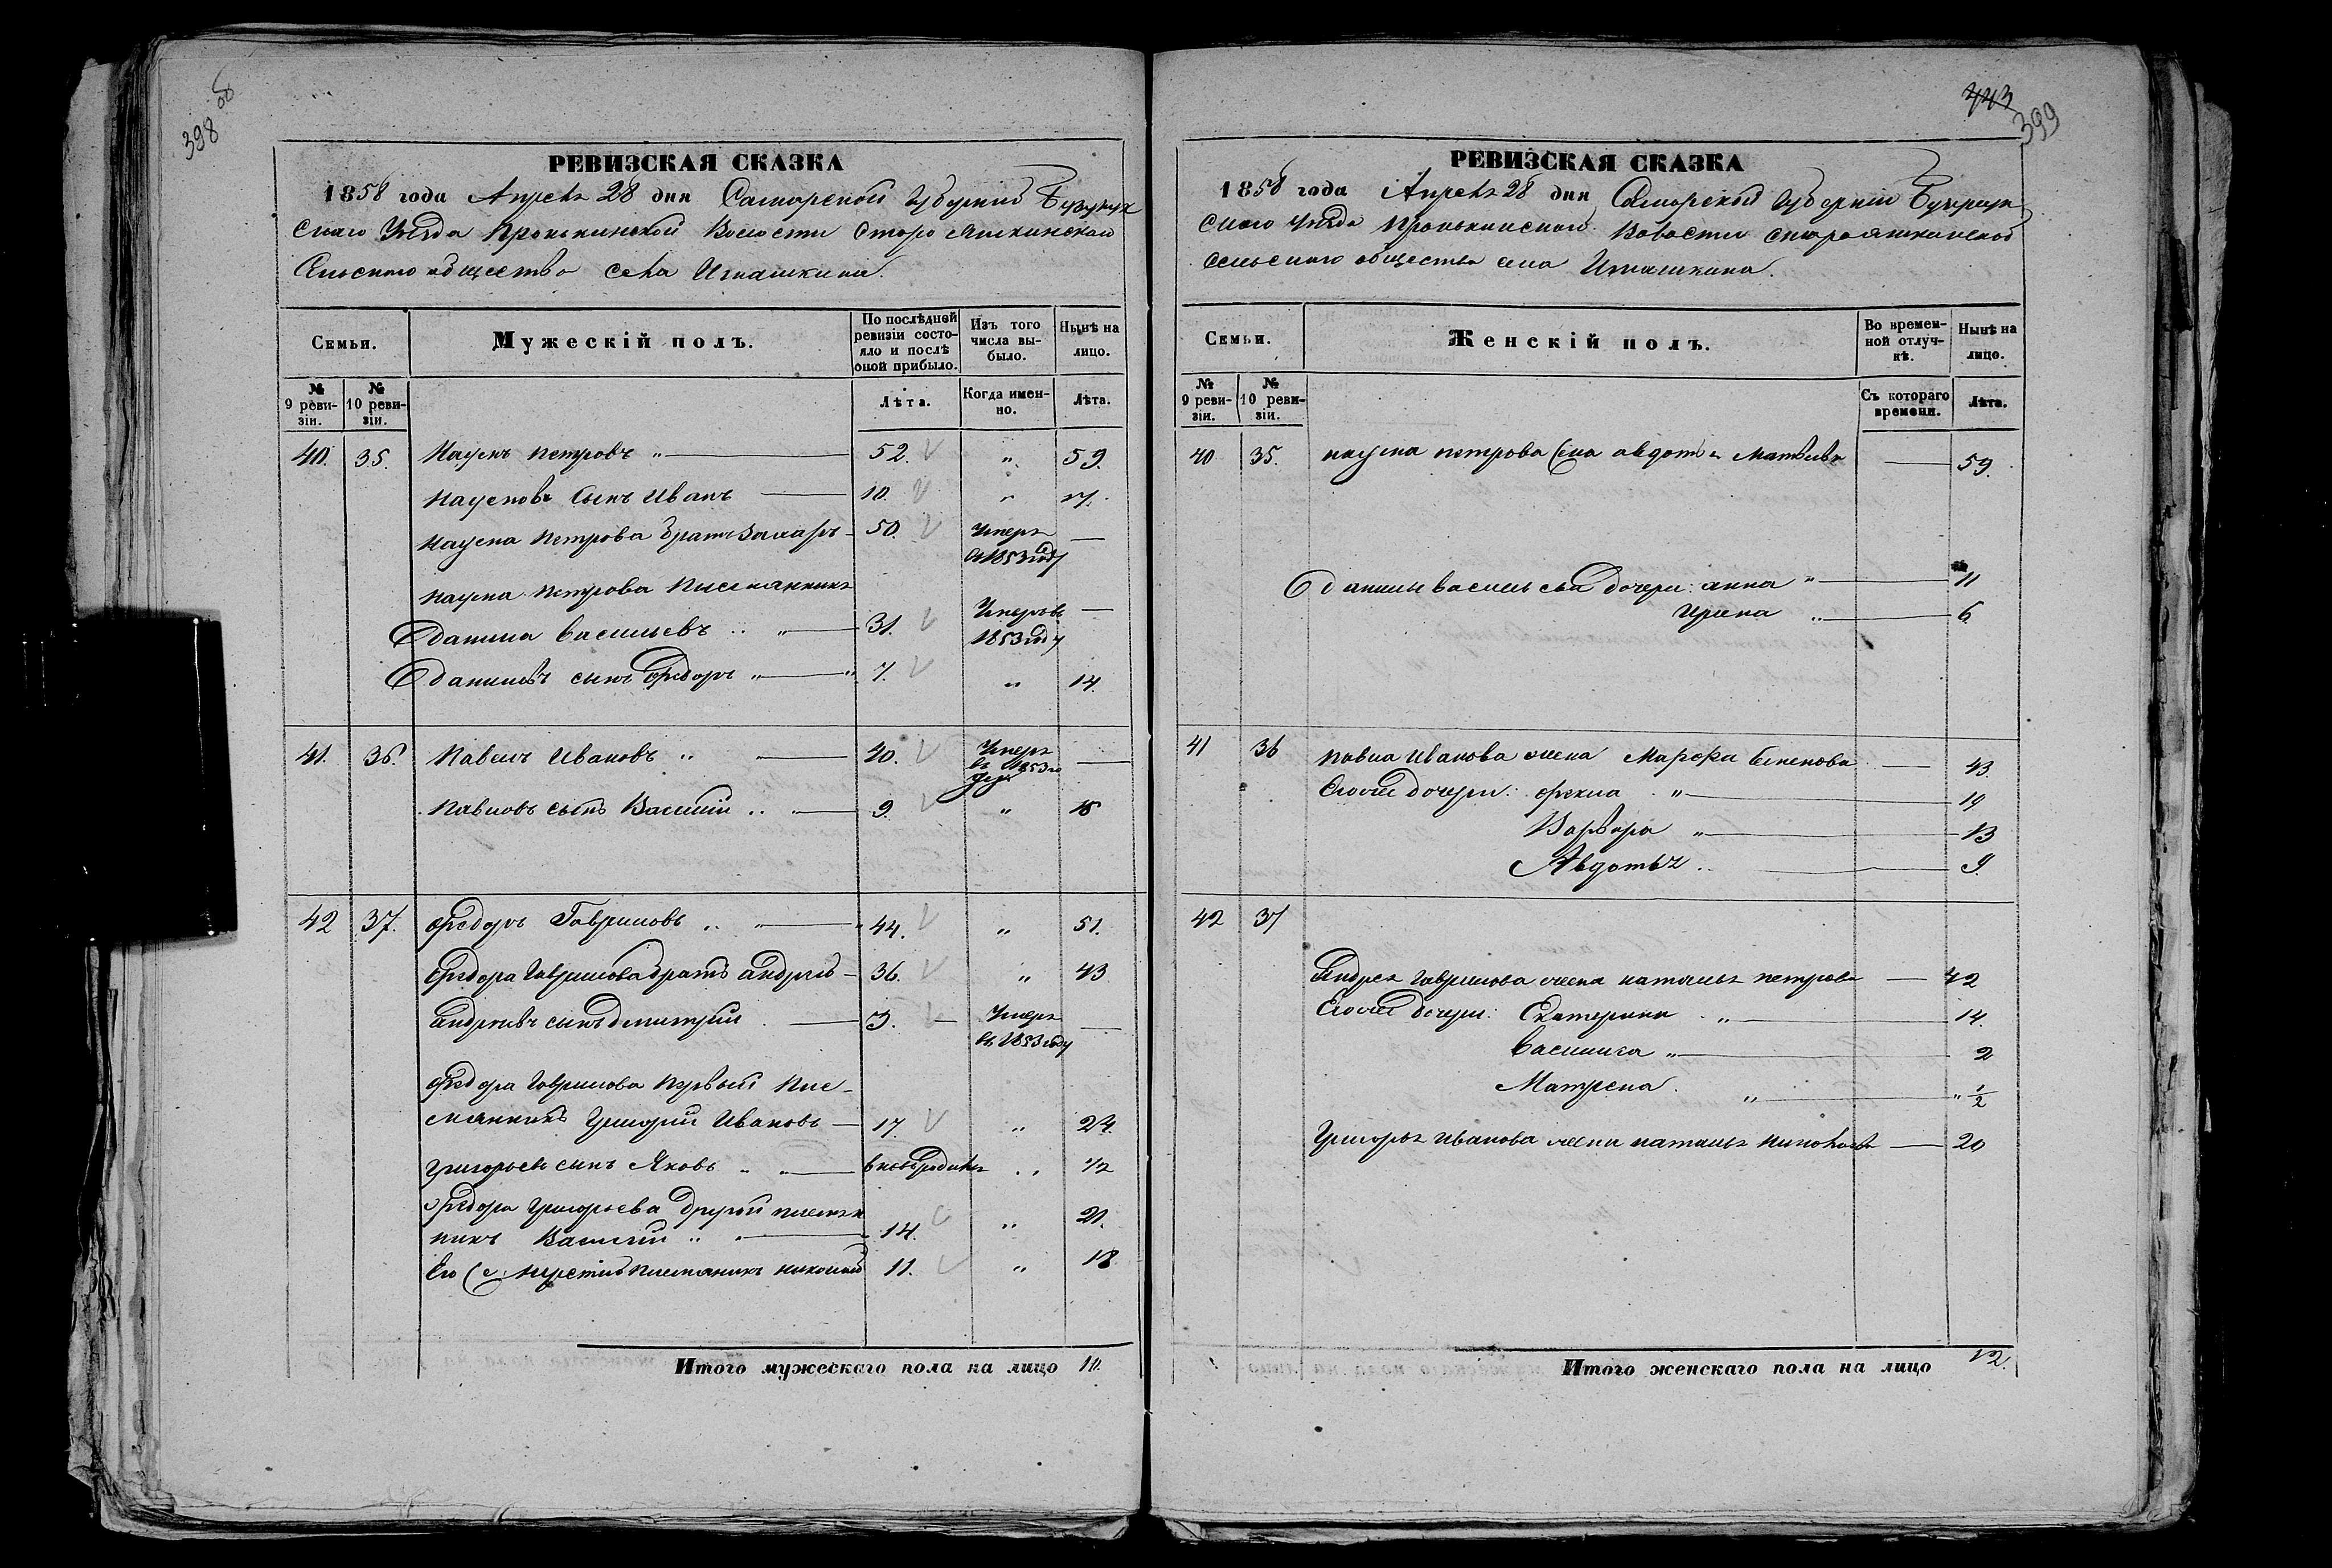 398 об
РЕВИЗСКАЯ СКАЗКА
1858 года Апреля 28 дня Самарской Губернии Бузулук
скаго Уезда Пронькинской Волости Старо Яшкинскаго
Сельскаго общества села Игнашкина.
Семьи. Мужескій полъ. По послѣдней ревизіи состояло и послѣ оной прибыло. Изъ того числа выбыло. Нынѣ на лицо.
№ 9 ревизіи. № 10 ревизіи. Лѣта. Когда именно. Лѣта.
40. 35. Наумъ Петровъ „ 52. „ 59.
Наумовъ Сынъ Иванъ 10. „ 17.
Наума Петрова Братъ Захаръ 50. Умеръ
въ 1853 году
Наума Петрова Племянникъ
Данила Васильевъ „ 31. Умеръ въ
1853 году
Даниловъ сынъ Федоръ „ 7. „ 14.
41. 36. Павелъ Ивановъ „ 40. Умеръ
въ 1853 го
ду
Павловъ сынъ Василий 9. „ 16
42 37. Федоръ Гавриловъ „ 44. „ 51.
Федора Гаврилова братъ Андрей 36. „ 43
Андреевъ сынъ Дмитрий 3. Умеръ
въ 1853 году
Федора Гаврилова Первый Пле-
мянникъ Григорий Ивановъ 17. „ 24.
Григорьевъ сынъ Яковъ „ вновь родился „ 1/2
Федора Григорьева Другой племян
никъ Василий „ 14. „ 21.
Его же третий племяникъ Николай 11. „ 18
Итого мужескаго пола на лицо 10.
443
399
РЕВИЗСКАЯ СКАЗКА
1858 года Апреля 28 дня Самарской Губернии Бузулук
скаго Уезда Пронькинской Волости Старояшкинскаго
Сельскаго общества села Игнашкина.
Семьи. Женскій полъ. Во временной отлучкѣ. Нынѣ на лицо.
№ 9 ревизіи. № 10 ревизіи. Съ котораго времени. Лѣта.
40 35. Наума Петрова жена Авдотья Матвеева 59.
Данилы Васильева дочери: Анна „ 11
Ирина „ 6.
41 36 Павла Иванова жена Марфа Семенова 43.
Его же дочери: Фекла „ 19
Варвара „ 13
Авдотья 9.
42 37
Андрея Гаврилова жена Наталья Петрова 42
Его же Дочери: Екатерина „ 14.
Василиса „ 2
Матрена „ „ 1/2
Григорья Иванова жена Наталья Николаева 20
Итого женскаго пола на лицо 12.